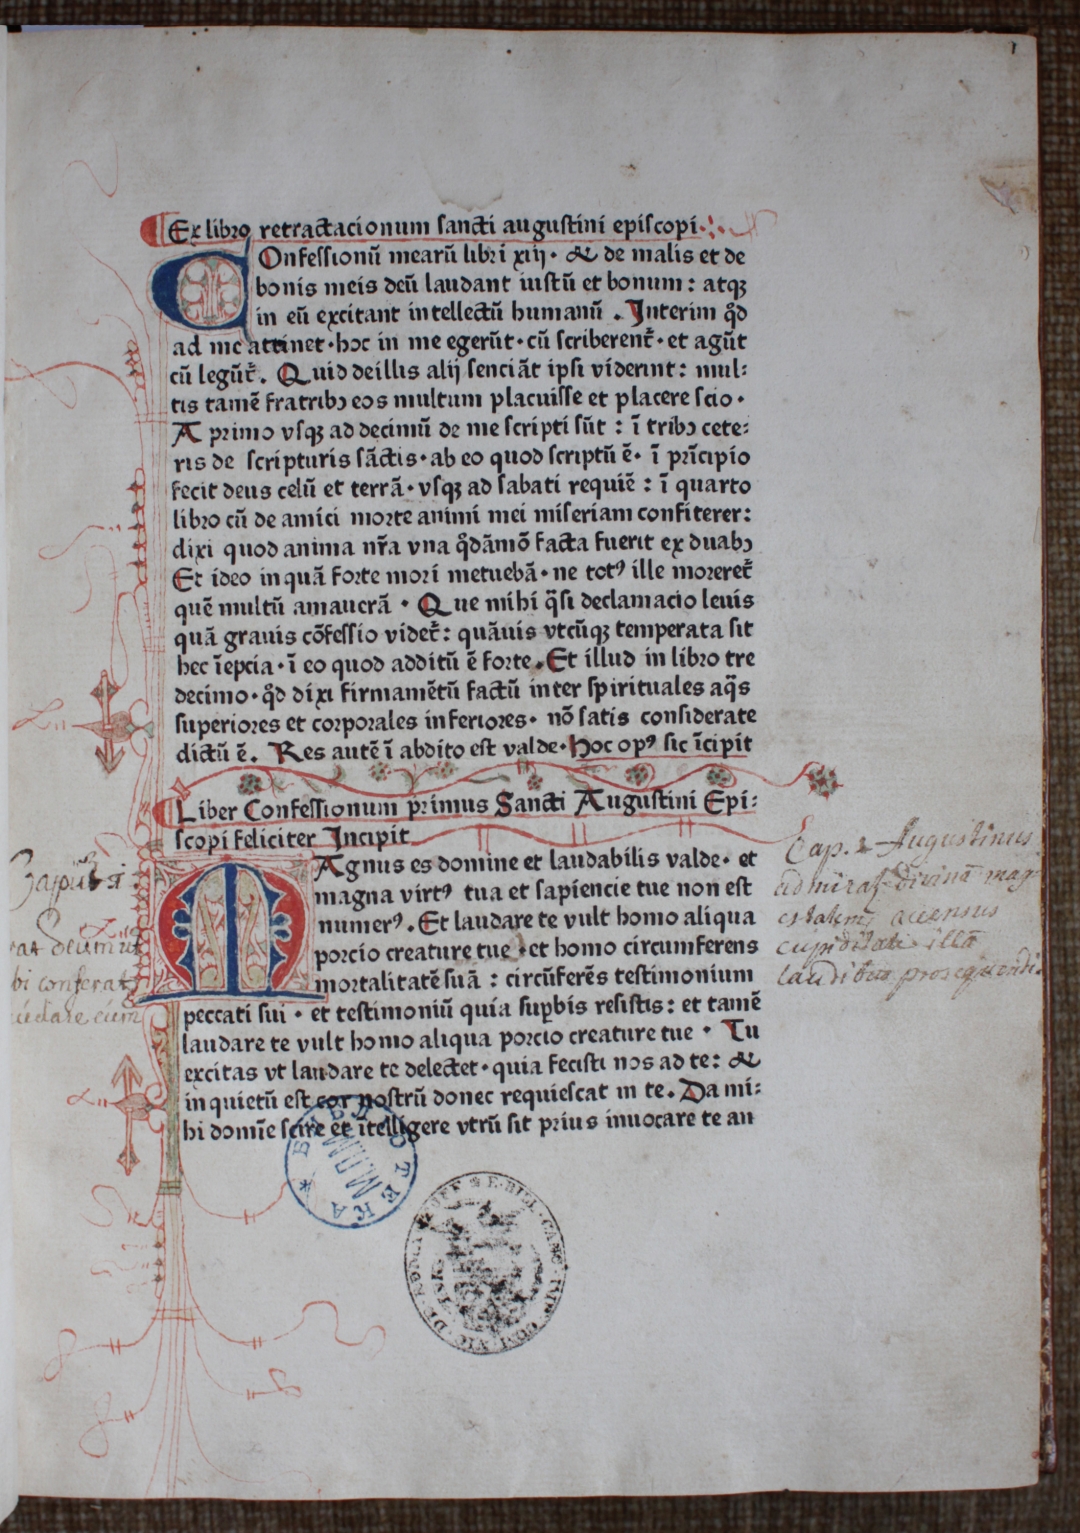 1
Ex libro retractacionum sancti augustini episcopi
COnfessionū mearū libri xiij· & de malis et de
bonis meis deū laudant iustū et bonum : atqꝫ
in eū excitant intellectū humanū . Interim qd̊
ad me attinet·hoc in me egerūt·cū scriberent᷑·et agūt
cū legūt᷑. Quid de illis alij senciāt ipsi viderint: mul:
tis tamē fratribꝫ eos multum placuisse et placere scio·
A primo vsqꝫ ad decimū de me scripti sūt : ī tribꝫ cete:
ris de scripturis sāctis·ab eo quod scriptū ē· ī prīcipio
fecit deus celū et terrā·vsqꝫ ad sabati requiē : ī quarto
libro cū de amici morte animi mei miseriam confiterer:
dixi quod anima nr̄a vna qd̊āmō facta fuerit ex duabꝫ
Et ideo inquā forte mori metuebā·ne totꝰ ille moreret᷑
quē multū amauerā · Que mihi q̄si declamacio leuis
quā grauis cōfessio videt᷑: quāuis vtcūqꝫ temperata sit
hec īepcia·ī eo quod additū ē forte.Et illud in libro tre
decimo·qd̊ dixi firmamētū factū inter spirituales aq̄s
superiores et corporales inferiores· nō satis considerate
dictū ē. Res autē ī abdito est valde·hoc opꝰ sic īcipit
Liber Confessionum primus Sancti Augustini Epi:
scopi feliciter Incipit
MAgnus es domine et laudabilis valde· et
magna virtꝰ tua et sapiencie tue non est
numerꝰ.Et laudare te vult homo aliqua
porcio creature tue ·et homo circumferens
mortalitatē suā : circūferēs testimonium
peccati sui · et testimoniū quia suꝑbis resistis: et tamē
laudare te vult homo aliqua porcio creature tue · Tu
excitas vt laudare te delectet·quia fecisti nos ad te: &
inquietū est cor nostrū donec requiescat in te.Da mi:
hi domīe scire et ītelligere vtrū sit prius inuocare te an
Cap. 1 Augustinus
admirat divinā mag
estatem accensus
cupiditate illā
laudibus prosequendi
rat deum ut
bi conferat
laudare eum
БИБЛИОТЕКА